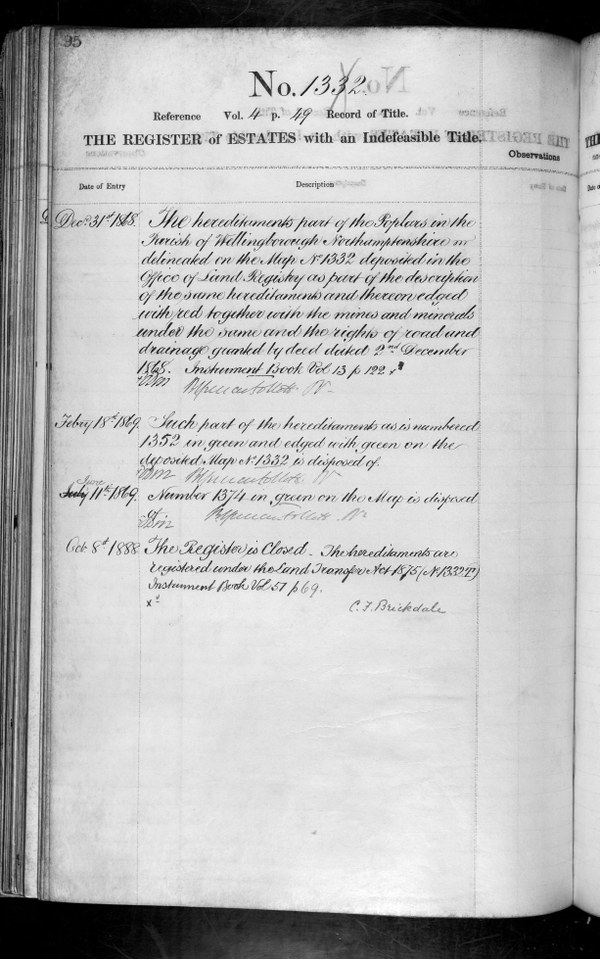 95
No. 1332.
Reference Vol. 4 p. 49 Record of Title.
THE REGISTER of ESTATES with an Indefeasible Title.
Observations
Date of Entry
Description
Decr 31st 1868. The hereditaments part of the Poplars in the
Parish of Wellingborough Northamptonshire
delineated on the Map No 1332 deposited in the
Office of Land Registry as part of the description
of the same hereditaments and thereon edged
with red together with the mines and minerals
under the same and the rights of road and
drainage granted by deed dated 2nd December
1868. Instrument Book Vol 13 p 122
Febry 18th 1869. Such part of the hereditaments as is numbered
1352 in green and edged with green on the
deposited Map No 1332 is disposed of.
June
July 11th 1869. Number 1374 in green on the Map is disposed
of.
Oct 8th 1888 The Register is Closed. The hereditaments are
registered under the Land Transfer Act 1875 (No 1332 T)
Instrument Book Vol 57 p 69.
C. F. Brickdale